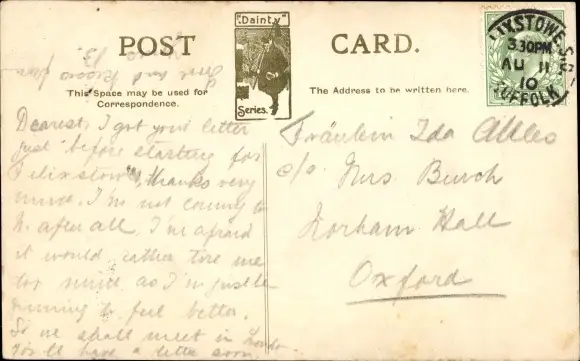 POST CARD.
"Dainty"
Series.
This Space may be used for
Correspondence.
The Address to be written here.
FELIXSTOWE
3.30PM
AU 11
10
SUFFOLK
Dearest, I got your letter
just before starting for
Felixstowe, thanks very
much. I'm not coming to
N. after all, I'm afraid
it would rather tire me
too much, as I'm just be
ginning to feel better.
So we shall meet in London
You'll have a letter soon.
Fräulein Ida
c/o. Mrs Burch
Norham Hall
Oxford